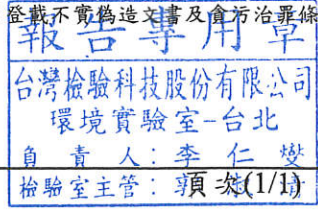 登載不實偽造文書及貪污治罪條
報告專用章
台灣檢驗科技股份有限公司
環境實驗室-台北
負責人:李仁燮
檢驗室主管:
頁次(1/1)